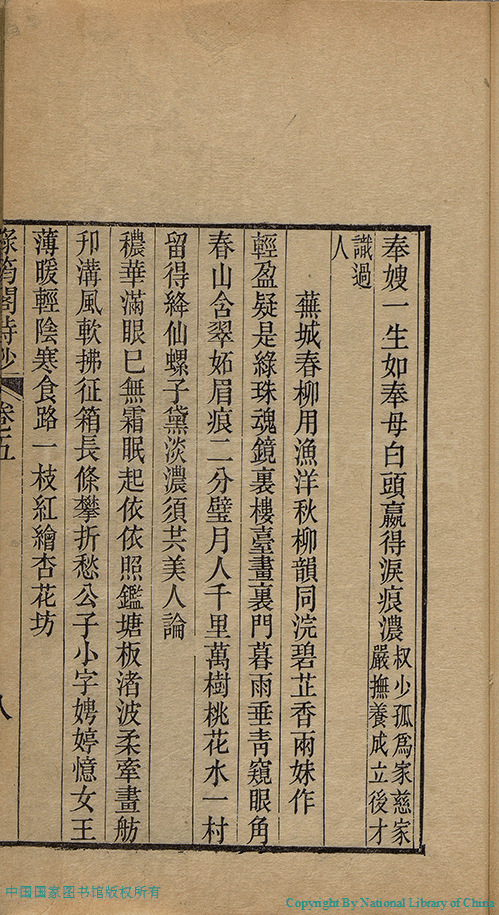 奉嫂一生如奉母白頭嬴得淚痕濃叔少孤爲家慈家嚴撫養成立後才
識過
人
蕪城春柳用漁洋秋柳韻同浣碧芷香兩妹作
輕盈疑是綠珠魂鏡裏樓臺畫裏門暮雨垂靑窺眼角
春山含翠妬眉痕二分璧月人千里萬樹桃花水一村
留得絳仙螺子黛淡濃須共美人論
穠華滿眼已無霜眠起依依照鑑塘板渚波柔牽畫舫
邗溝風軟拂征箱長條攀折愁公子小字娉婷憶女王
薄暖輕陰寒食路一枝紅繪杏花坊
綠筠閣詩鈔 卷五
八
中国国家图书馆版权所有
Copyright By National Library of China